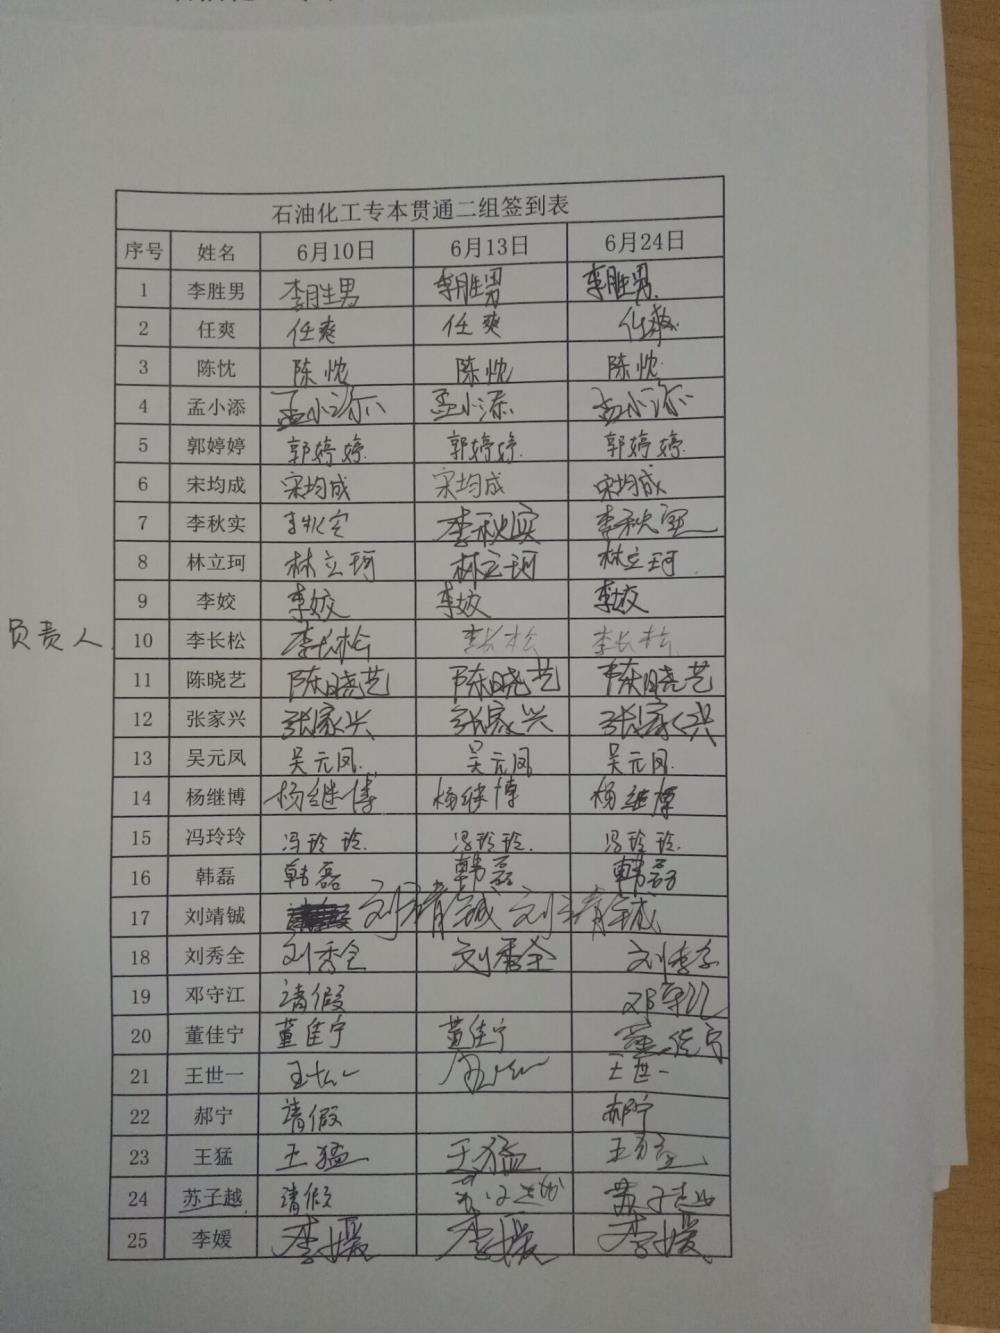 石油化工专本贯通二组签到表
序号 姓名 6月10日 6月13日 6月24日
1 李胜男 李胜男 李胜男 李胜男
2 任爽 任爽 任爽 任爽
3 陈忱 陈忱 陈忱 陈忱
4 孟小添 孟小添 孟小添 孟小添
5 郭婷婷 郭婷婷 郭婷婷 郭婷婷
6 宋均成 宋均成 宋均成 宋均成
7 李秋实 李秋实 李秋实 李秋实
8 林立珂 林立珂 林立珂 林立珂
9 李姣 李姣 李姣 李姣
负责人 10 李长松 李长松 李长松 李长松
11 陈晓艺 陈晓艺 陈晓艺 陈晓艺
12 张家兴 张家兴 张家兴 张家兴
13 吴元凤 吴元凤 吴元凤 吴元凤
14 杨继博 杨继博 杨继博 杨继博
15 冯玲玲 冯玲玲 冯玲玲 冯玲玲
16 韩磊 韩磊 韩磊 韩磊
17 刘靖铖 刘靖铖 刘靖铖
18 刘秀全 刘秀全 刘秀全 刘秀全
19 邓守江 请假 邓守江
20 董佳宁 董佳宁 董佳宁 董佳宁
21 王世一 王世一 王世一
22 郝宁 请假 郝宁
23 王猛 王猛 王猛 王猛
24 苏子越 请假 苏子越 苏子越
25 李媛 李媛 李媛 李媛